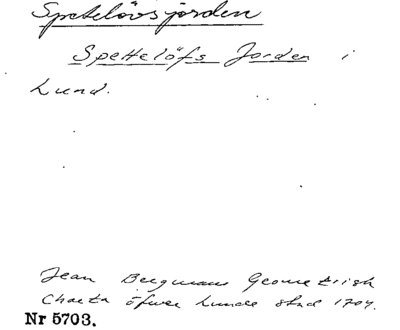 Spettelövsjorden
Spettelöfs Jorden i
Lund.
Jean Bergmans Geometrisk
Charta öfwer Lunds stad 1704.
Nr 5703.